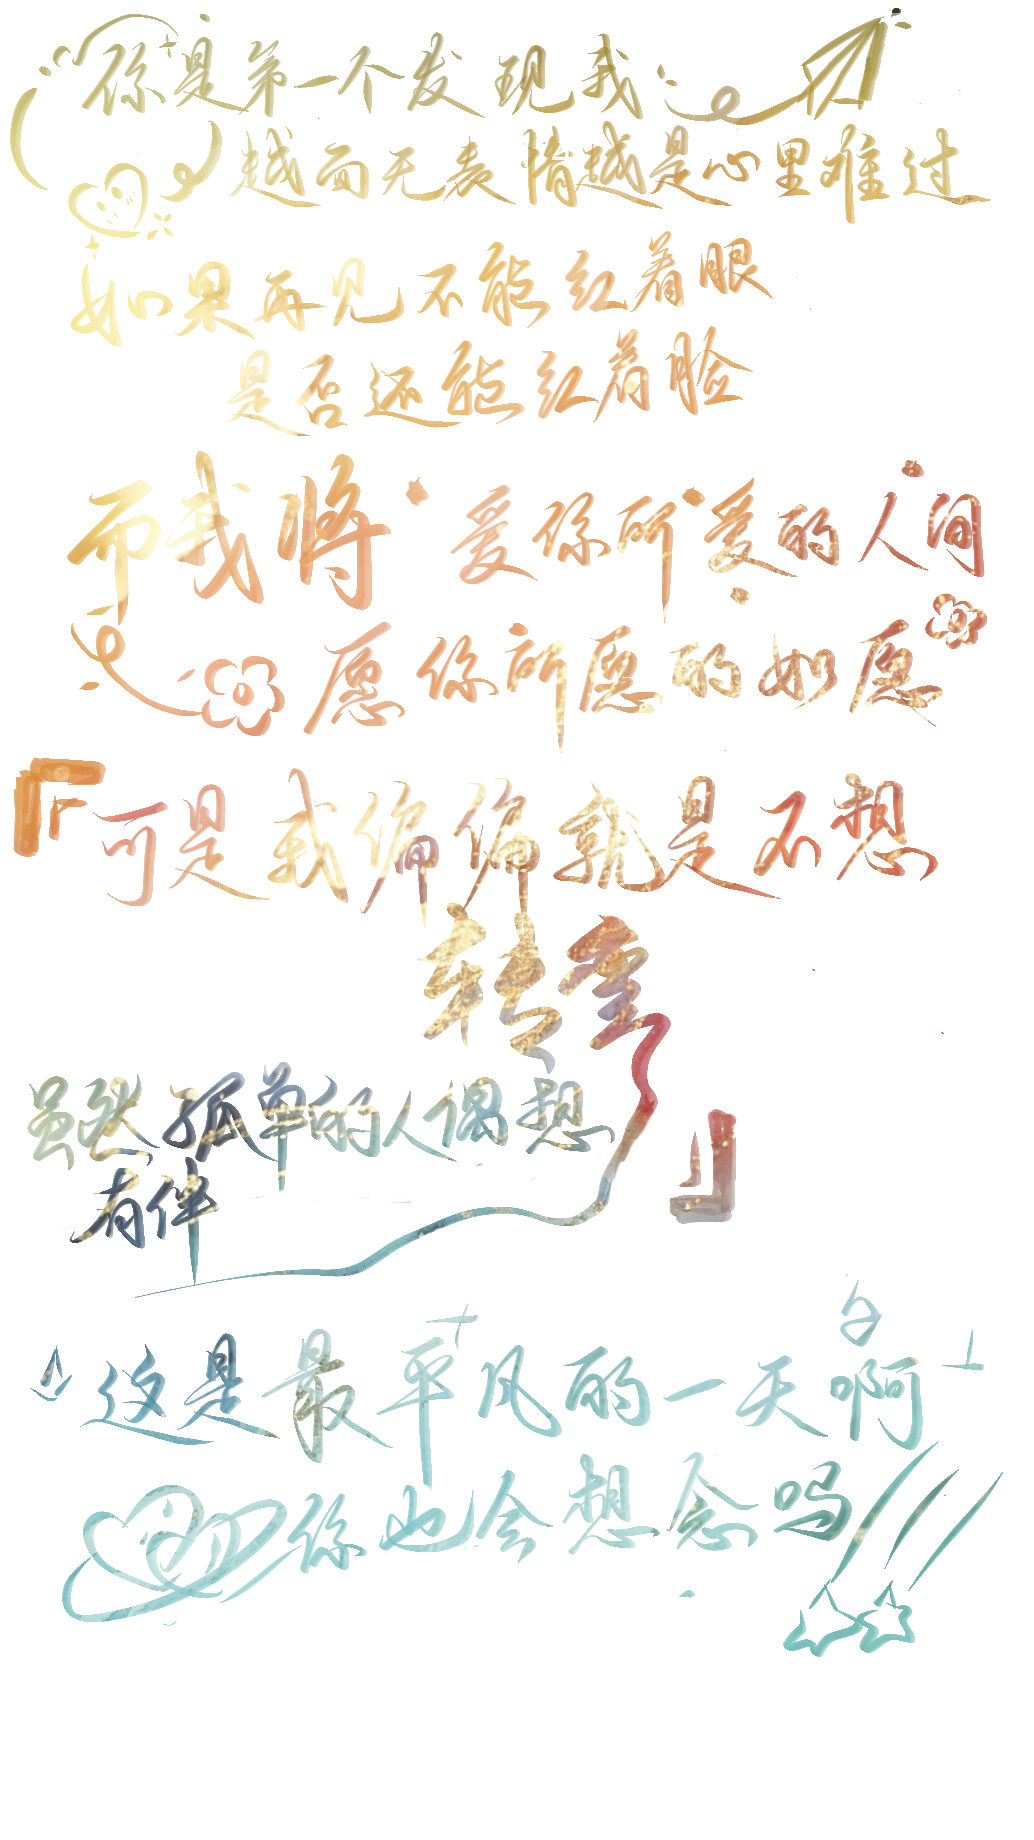 你是第一个发现我
越面无表情越是心里难过
如果再见不能红着眼
是否还能红着脸
而我将爱你所爱的人间
愿你所愿的如愿
『可是我偏偏就是不想
转弯』
虽然孤单的人偶想
有伴
这是最平凡的一天啊
你也会想念吗